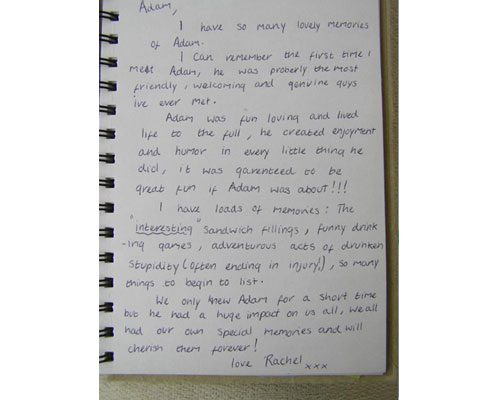 Adam,
I have so many lovely memories
of Adam.
I Can remember the first time I
meet Adam, he was properly the most
friendly, welcoming and genuine guys
ive ever met.
Adam was fun loving and lived
life to the full, he created enjoyment
and humor in every little thing he
did, it was garenteed to be
great fun if Adam was about!!!
I have loads of memories: The
"interesting" sandwich fillings, funny drink
-ing games, adventurous acts of drunken
stupidity (often ending in injury!), so many
things to begin to list.
We only knew Adam for a short time
but he had a huge impact on us all, we all
had our own special memories and will
cherish them forever!
love Rachel xxx